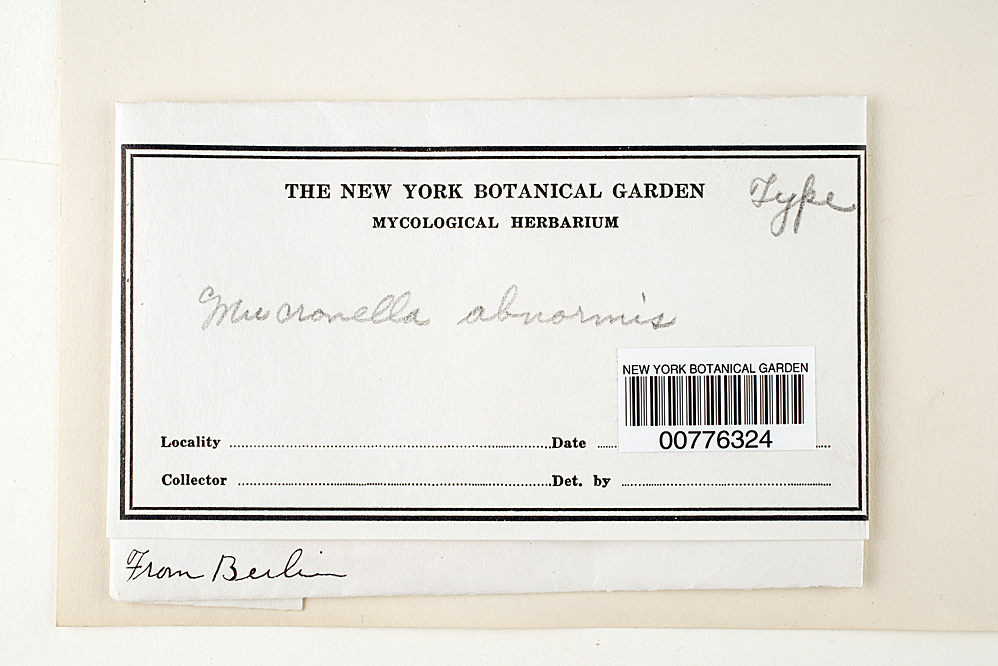 THE NEW YORK BOTANICAL GARDEN
Type
MYCOLOGICAL HERBARIUM
Mucronella abnormis
NEW YORK BOTANICAL GARDEN
00776324
Locality Date
Collector Det. by
From Berlin